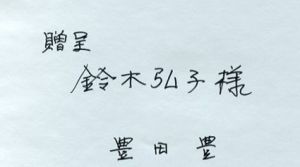 贈呈
鈴木弘子様
豊田豊